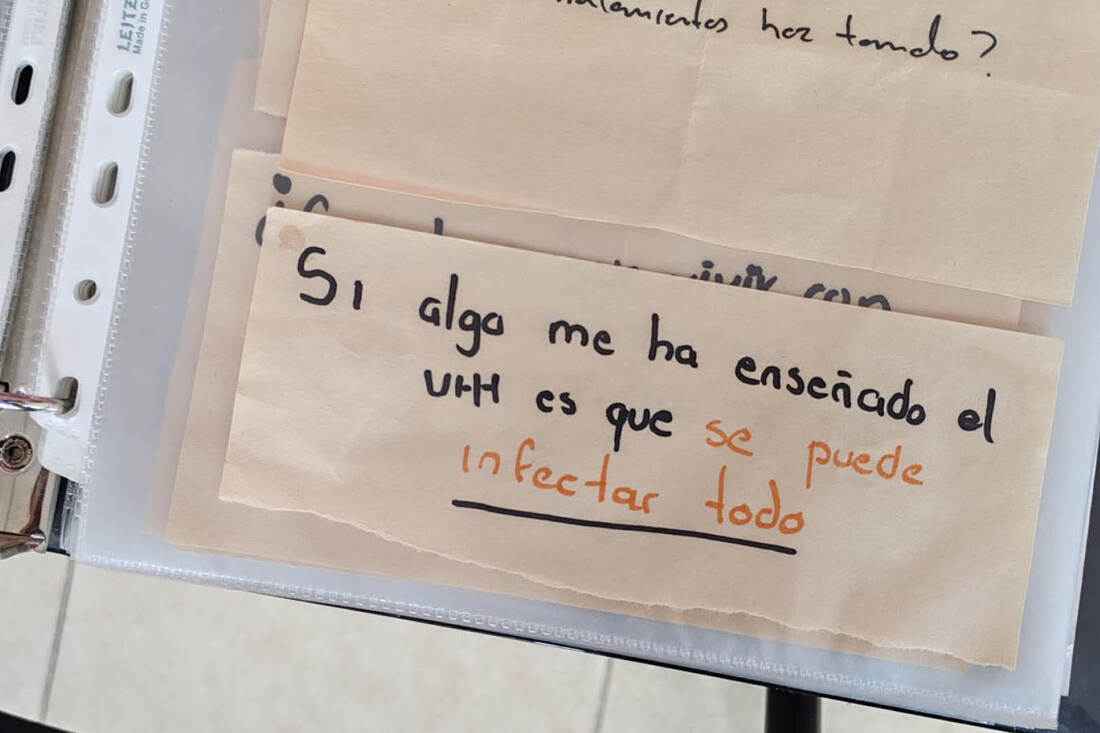 LEITZ
Made in G
haz tomdo?
vivir con
Si algo me ha enseñado el
VIH es que se puede
infectar todo